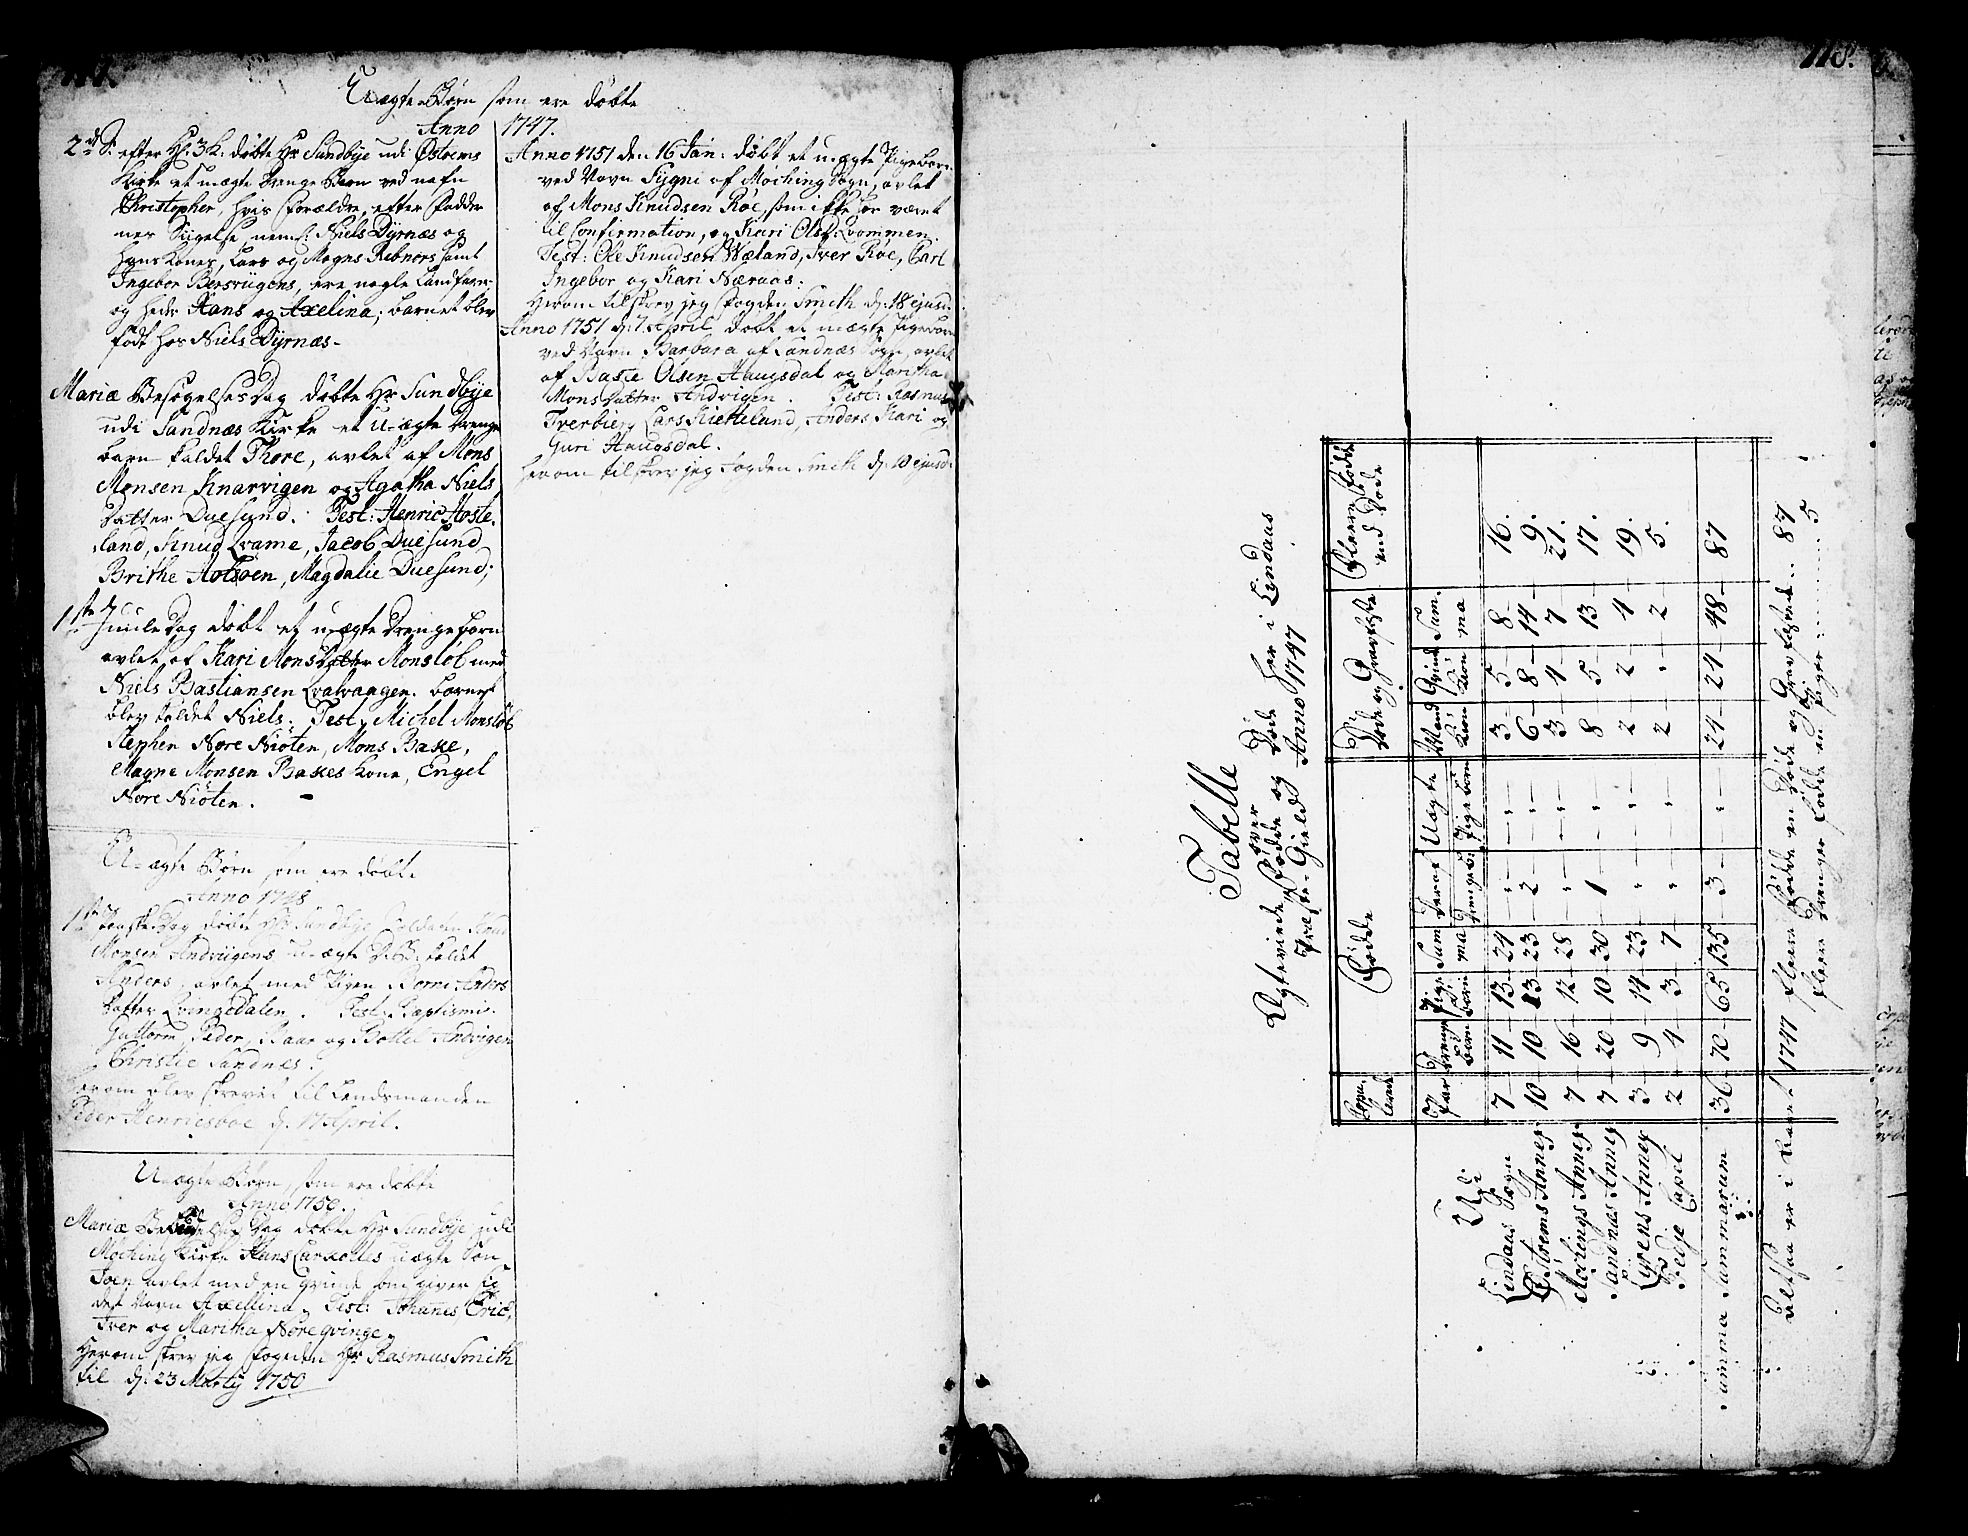 117.
Uægte Børn som ere døbte
Anno 1747.
2den S: efter H: 3 K: døbte Hr Sundbye udi Østrems
Kirke et uægte Drenge Barn ved nafn
Christopher, hvis Forældre, efter Fadder
nes Siigelse, neml: Niels Dyrnæs og
hans kones, Lars og Mogns Rebnors samt
Ingebor Bersvigens, ere nogle Landfarer
og heder Hans og Axelina; barnet blev
født hos Niels Dyrnæs-
Mariæ Besøgelses Dag døbte Hr Sundbye
udi Sandnæs Kirke et U-ægte Drenge
barn kaldet Thore, avlet af Mons
Monsen Knarvigen og Agatha Niels
Datter Duesund. Test: Henric Hoste-
land, Knud Qvame, Jacob Duesund
Brithe Hopsoen, Magdalie Duesund;
1ste Juule Dag døbt et uægte Drengebarn
avlet af Kari Mons Datter Monsløb med
Niels Bastiansen Qvalvaagen. barnet
blev kaldet Niels. Test: Michel Monsløb
Stephen Nore Niøten, Mons Baxe,
Magne Monsen Baxes kone, Engel
Nore Niøten.
U-ægte Børn, som ere døbte
Anno 1748
1ste Paaske Dag døbte Hr Sundbye Soldaten Knud
Monsen Andviigens u-ægte D: B: kaldt
Anders, avlet med Pigen Borni Anders
Datter Qvingedalen. Test: Baptismi.
Guttorm, Peder, Baar og Bottel Andvigen
Christie Sandnes.
herom blev skrevet til Lendsmanden
Peder Henricsboe d. 17 April.
U-ægte Børn, som ere døbte
Anno 1750.
Mariæ Bebudelses Dag døbte Hr Sundbye udi
Moching Kirke Hans uægte Søn
Joen avlet med en qvinde som giver sig
det Navn Axellina. Test: Johanes, Eric,
Iver og Maritha Nore qvinge
Herom skrev jeg Fogden Hr Rasmus Smith
til d: 23 Martij 1750
Anno 1751 den 16 Jan: døbt et uægte Pigebarn
ved Navn Sygni af Moching Sogn, avlet
af Mons Knudsen Røe, som ikke har været
til Confirmation, og Kari Olsd: Qvammen
Test: Ole Knudsen Wæland, Iver Røe, Carl
Ingebor og Kari Næraas:
Herom tilskrev jeg Fogden Smith d: 18 ejusd:
Anno 1751 d: 7. April døbt et uægte Pigebarn
ved Navn Barbara af Sandnæs Sogn, avlet
af Baste Olsen Haugsdal og Maritha
Mons Datter Andvigen. Test: Rasmus
Tverberg Lars Kietteland, Anders, Kari og
Guri Haugsdal.
herom tilskrev jeg Fogden Smith d: 10 ejusd:
118.
Tabelle
over
Ægteviede Fødde og Døde her i Lindaas
Præste-Gield Anno 1747
Copu-lerede Fødde Døde og Gravfæste Fleere fødde end Døde
Udi Par Drenge Børn Pige Børn Summa Deraf Uægte Drengeb: Pigebørn Mand Kiøn Qvind Kiøn Summa
Lindaas Sogn 7 11 13 24 " " 3 5 8 16.
Østrems Annex 10 10 13 23 2 " 6 8 14 9.
Mochings Annex 7 16 12 28 " " 3 4 7 21.
Sandnæs Annex 7 20 10 30 1 " 8 5 13 17.
Lyrens Annex 3 9 14 23 " " 2 2 4 19.
Fedje Capel 2 4 3 7 " " 2 " 2 5.
Summa Summarum 36 70 65 135 3 " 24 24 48 87
Saa er i Aaret 1747 fleere Fødde en Døde og Gravfæstede... 87
fleere Drenger fødde en Piger........5